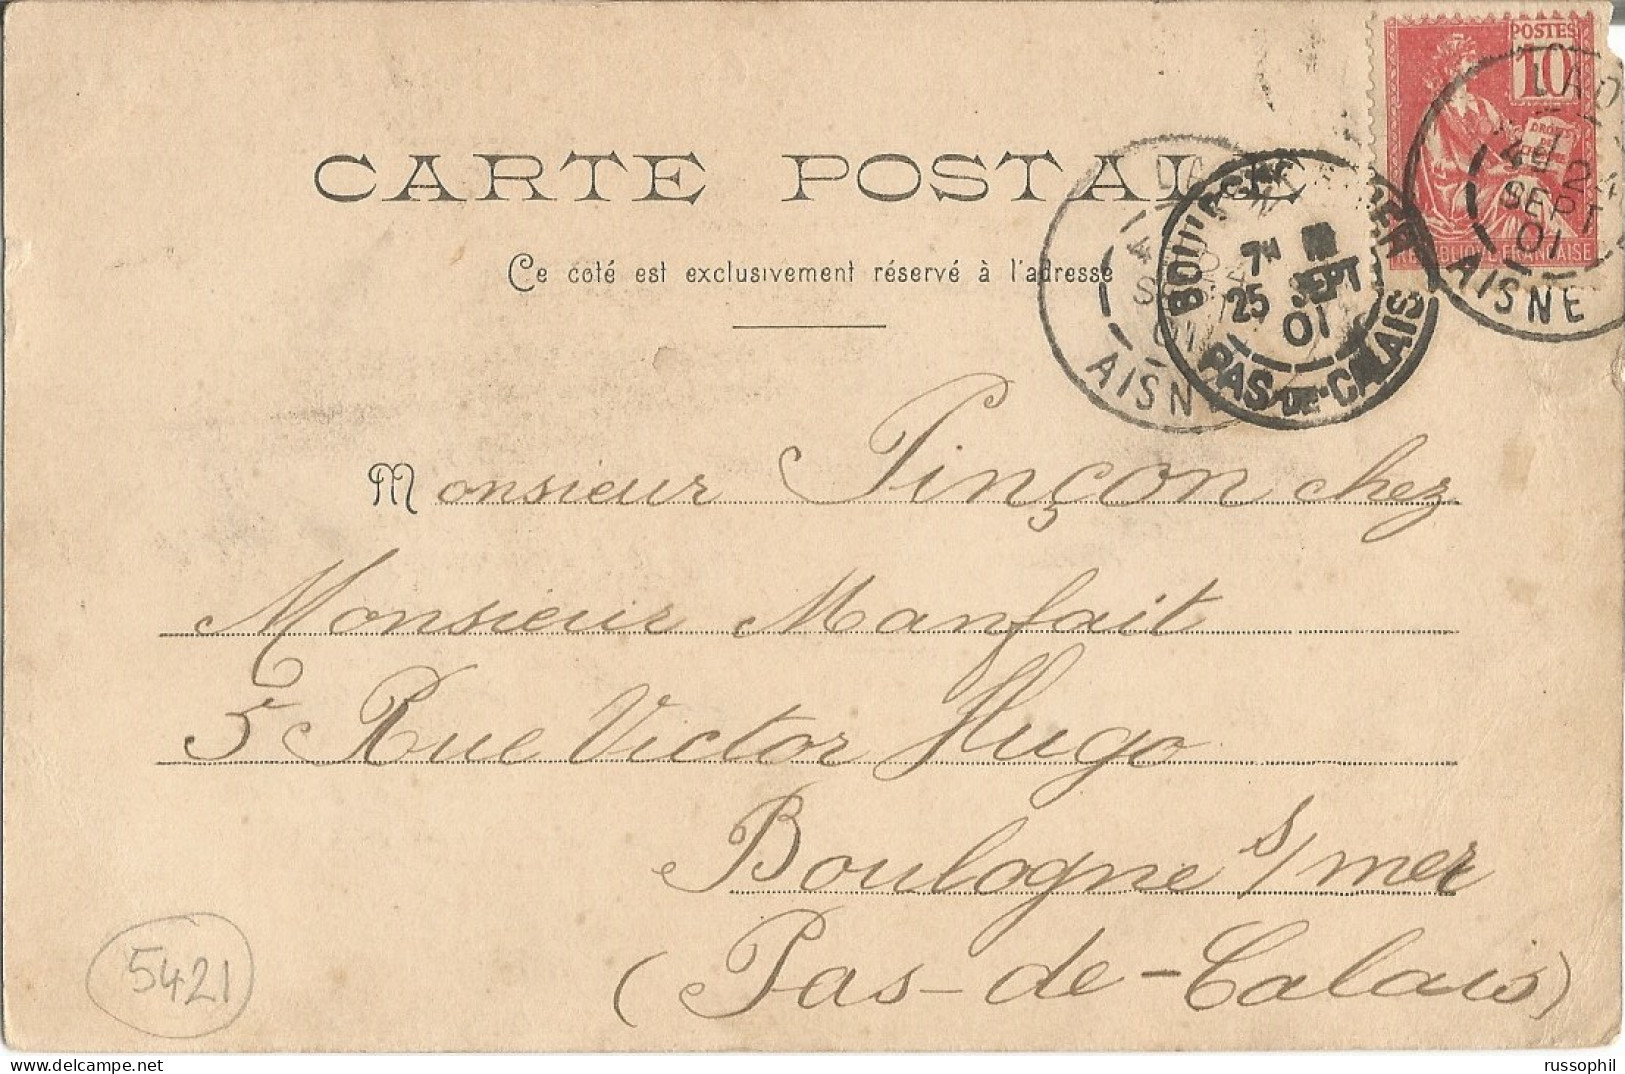 POSTES
10
REPUBLIQUE FRANÇAISE
24
SEPT
01
AISNE
AISNE
7H
25 SEPT
01
PAS-DE-CALAIS
CARTE POSTALE
Ce coté est exclusivement réservé à l'adresse
Monsieur Pinçon chez
Monsieur Manfait
5 Rue Victor Hugo
Boulogne s/mer
(Pas-de-Calais)
5421
russophil